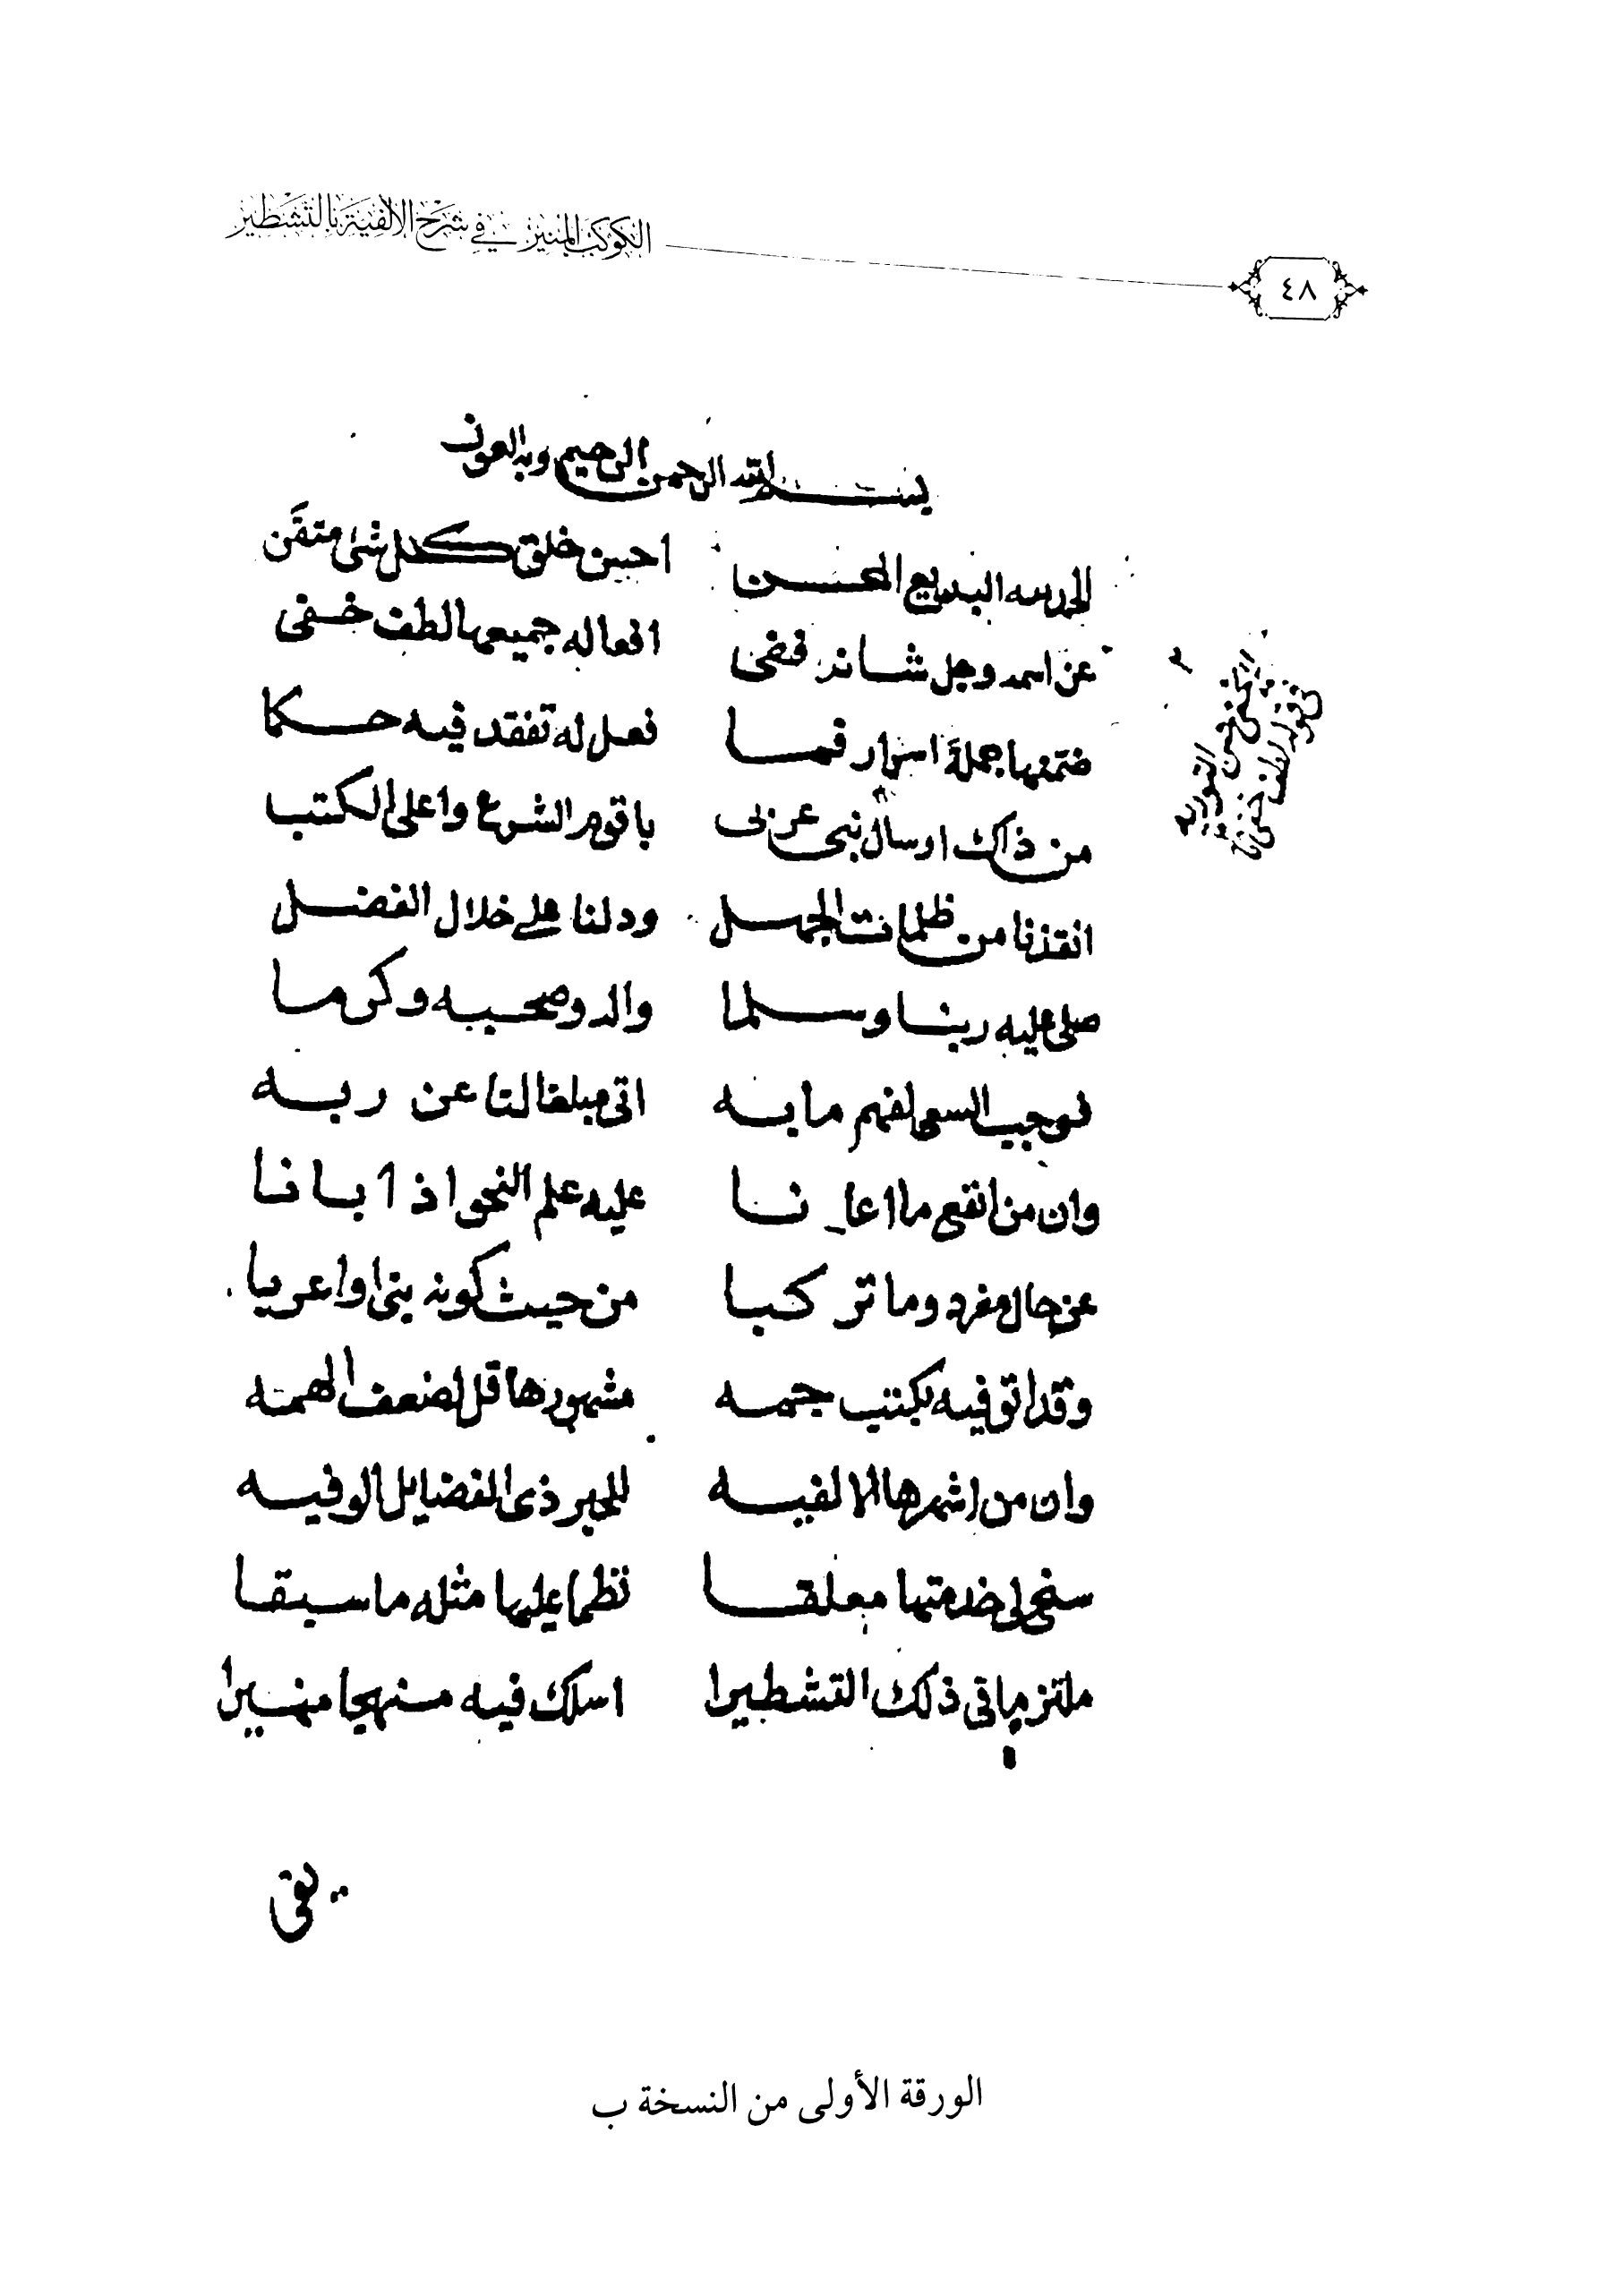 الكوكب المنير في شرح الألفية بالتشطير
٤٨
بسم الله الرحمن الرحيم وبه العون
الحمد لله البديع المحسن احسن خلق كل شئ متقن
عن اسمه وجل شانه ففي افعاله جميعها لطف خفي
ضمنها جملة اسرار فما فعل له تفقد فيه حكما
من ذاك ارسال نبي عربي باقوم الشرع واعلى الكتب
انقذنا من ظلمات الجهل ودلنا على خلال الفضل
صلى عليه ربنا وسلما واله وصحبه وكرما
فوجب السعي لفهم ما به اتى مبلغا لنا عن ربه
وان من انفع ما اعاننا عليه علم النحو اذ ابانا
عن حال مفرد وما تركبا من حيث كونه بني او اعربا
وقد اتو فيه بكتب جمه مشهورها قل لضعف الهمه
وان من اشهرها الالفيه للحبر ذي الفضايل الوفيه
سنح لي خدمتها معلقا نظما عليها مثله ما سبقا
ملتزما في ذلك التشطيرا اسلك فيه منهجا منيرا
في قوله لطف خفي
الورقة الأولى من النسخة ب